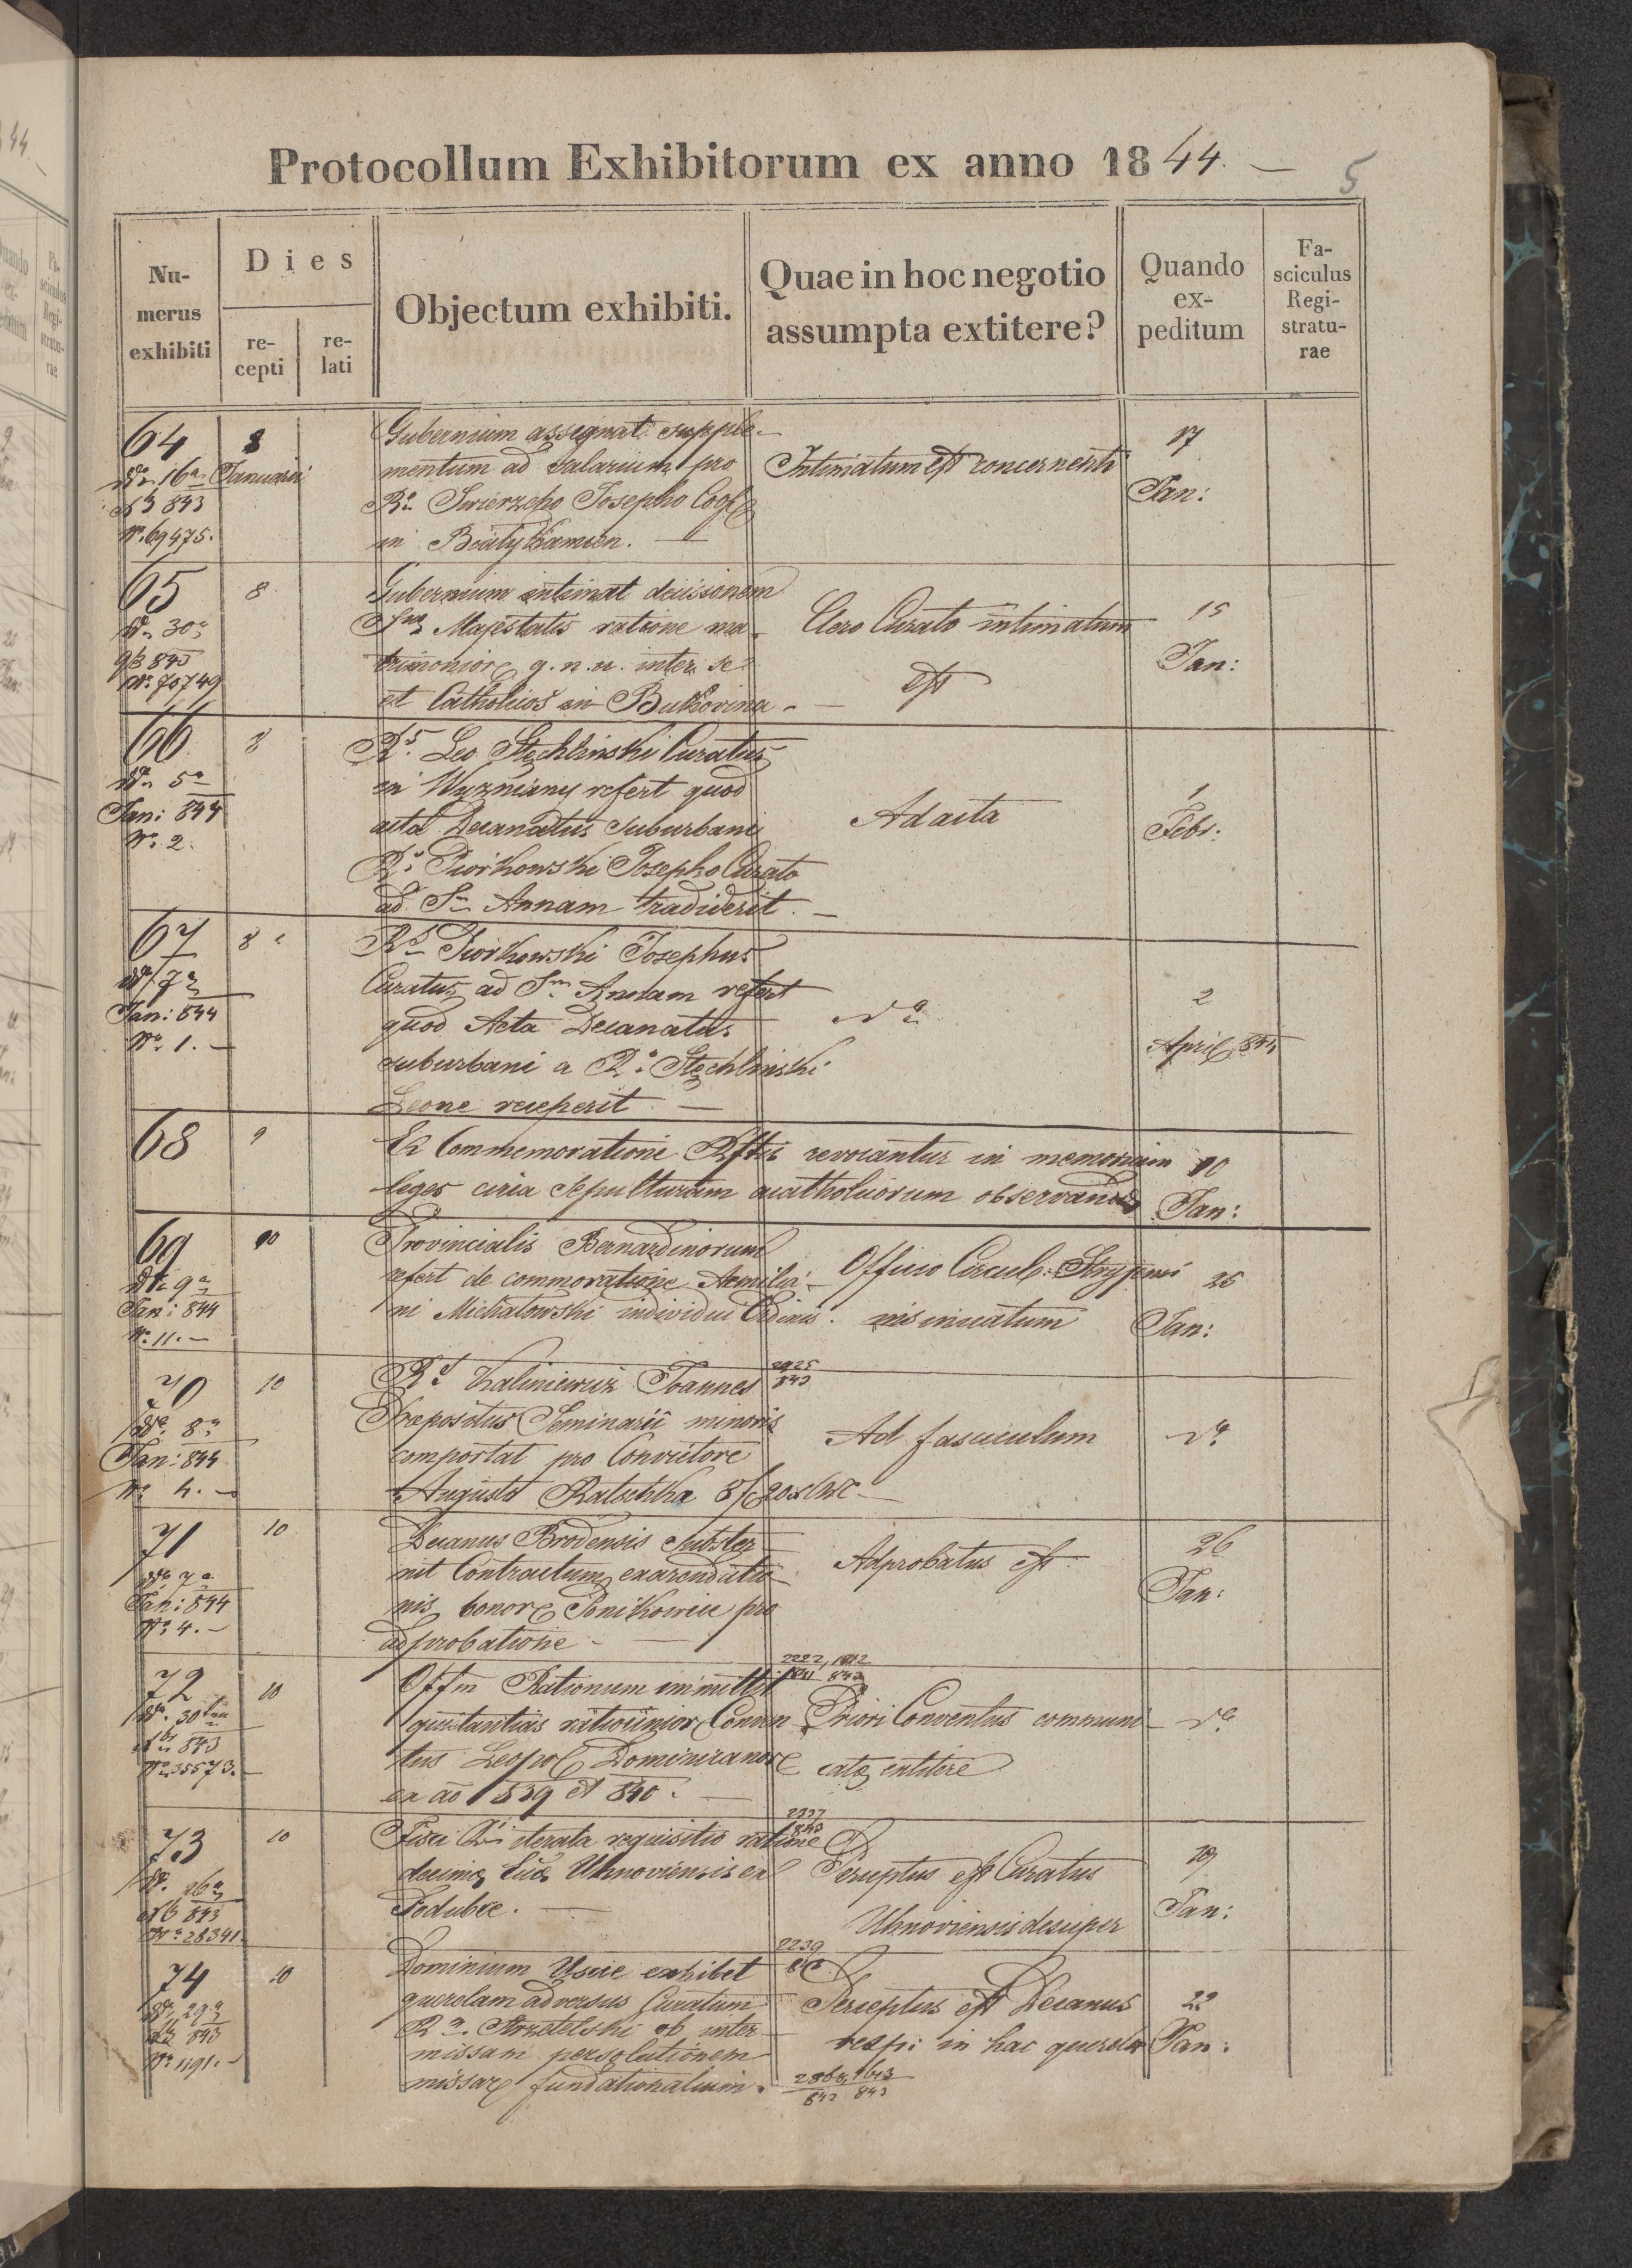 Protocollum Exhibitorum ex anno 1844. —
5
Numerus exhibiti
Dies
recepti
relati
Objectum exhibiti.
Quae in hoc negotio assumpta extitere?
Quando expeditum
Fasciculus Registraturae
64
8
Januarii
16a
843
No. 69475.
Gubernium assignat supple-
mentum ad salarium pro
Ro Swierzcho Josepho
in Biały Kamien. —
Intimatum est concernenti
17
Jan:
65
8
30a
843
No. 70749
Gubernium intimat decisionem
Majestatis ratione ma-
trimonior g. n. u. inter se
et Catholicos in Bukovina. —
Clero Curato intimatum
est
15
Jan:
66
8
dto 5a
Jan: 844
No. 2.
Rs. Leo Stechlinski Curatus
in Wyzniany refert quod
acta Decanatus suburbani
Ro. Piorkowski Josepho Curato
ad Sm Annam tradiderit. —
Ad acta
1
Febr:
67
8
7a
Jan: 844
No. 1. —
Rs Piorkowski Josephus
Curatus ad Sm. Annam refert
quod Acta Decanatus
suburbani a Ro. Stechlinski
Leone receperit —
2
April 844
68
9
Ex Commemoratione revocantur in memoriam
leges circa sepulturam acatholicorum observandas
10
Jan:
69
10
dto 9a
Jan: 844
No. 11. —
Provincialis Bernardinorum
refert de commoratione Aemilia-
ni Michałowski individui Ordinis.
Officio Circul: Stryjensi
insinuatum
25
Jan:
70
10
dto. 8a
Jan: 844
No. 4. —
Rs Kaliniewicz Joannes
Praepositus Seminarii minoris
comportat pro Convictore
Augusto Ratschka
2925
843
Ad fasciculum
71
10
dto 7a
Jan: 844
No. 4. —
Decanus Brodensis subster-
nit Contractum exarendatio-
nis bonor Ponikowice pro
adprobatione —
Adprobatus est.
26
Jan:
72
10
dto. 30
843
No 35573. —
Offm Rationum immittit
quietantias ratiocinior Conven-
tus Leopol Dominicanor
ex ao 839 et 840. —
Priori Conventus communi-
catae extitere
73
10
26a
843
No. 28341.
Fisci iterata requisitio ratione
decimae Uhnoviensis ex
Poddubce. —
Perceptus est Curatus
Uhnoviensis desuper
29
Jan:
74
10
dto. 29a
843
No. 1191. —
Dominium Uscie exhibet
querelam adversus Curatum
Strzetelski ob inter-
missam persolutionem
missar fundationalium.
2239
Perceptus est Decanus
resp: in hac querela
22
Jan:
842 843